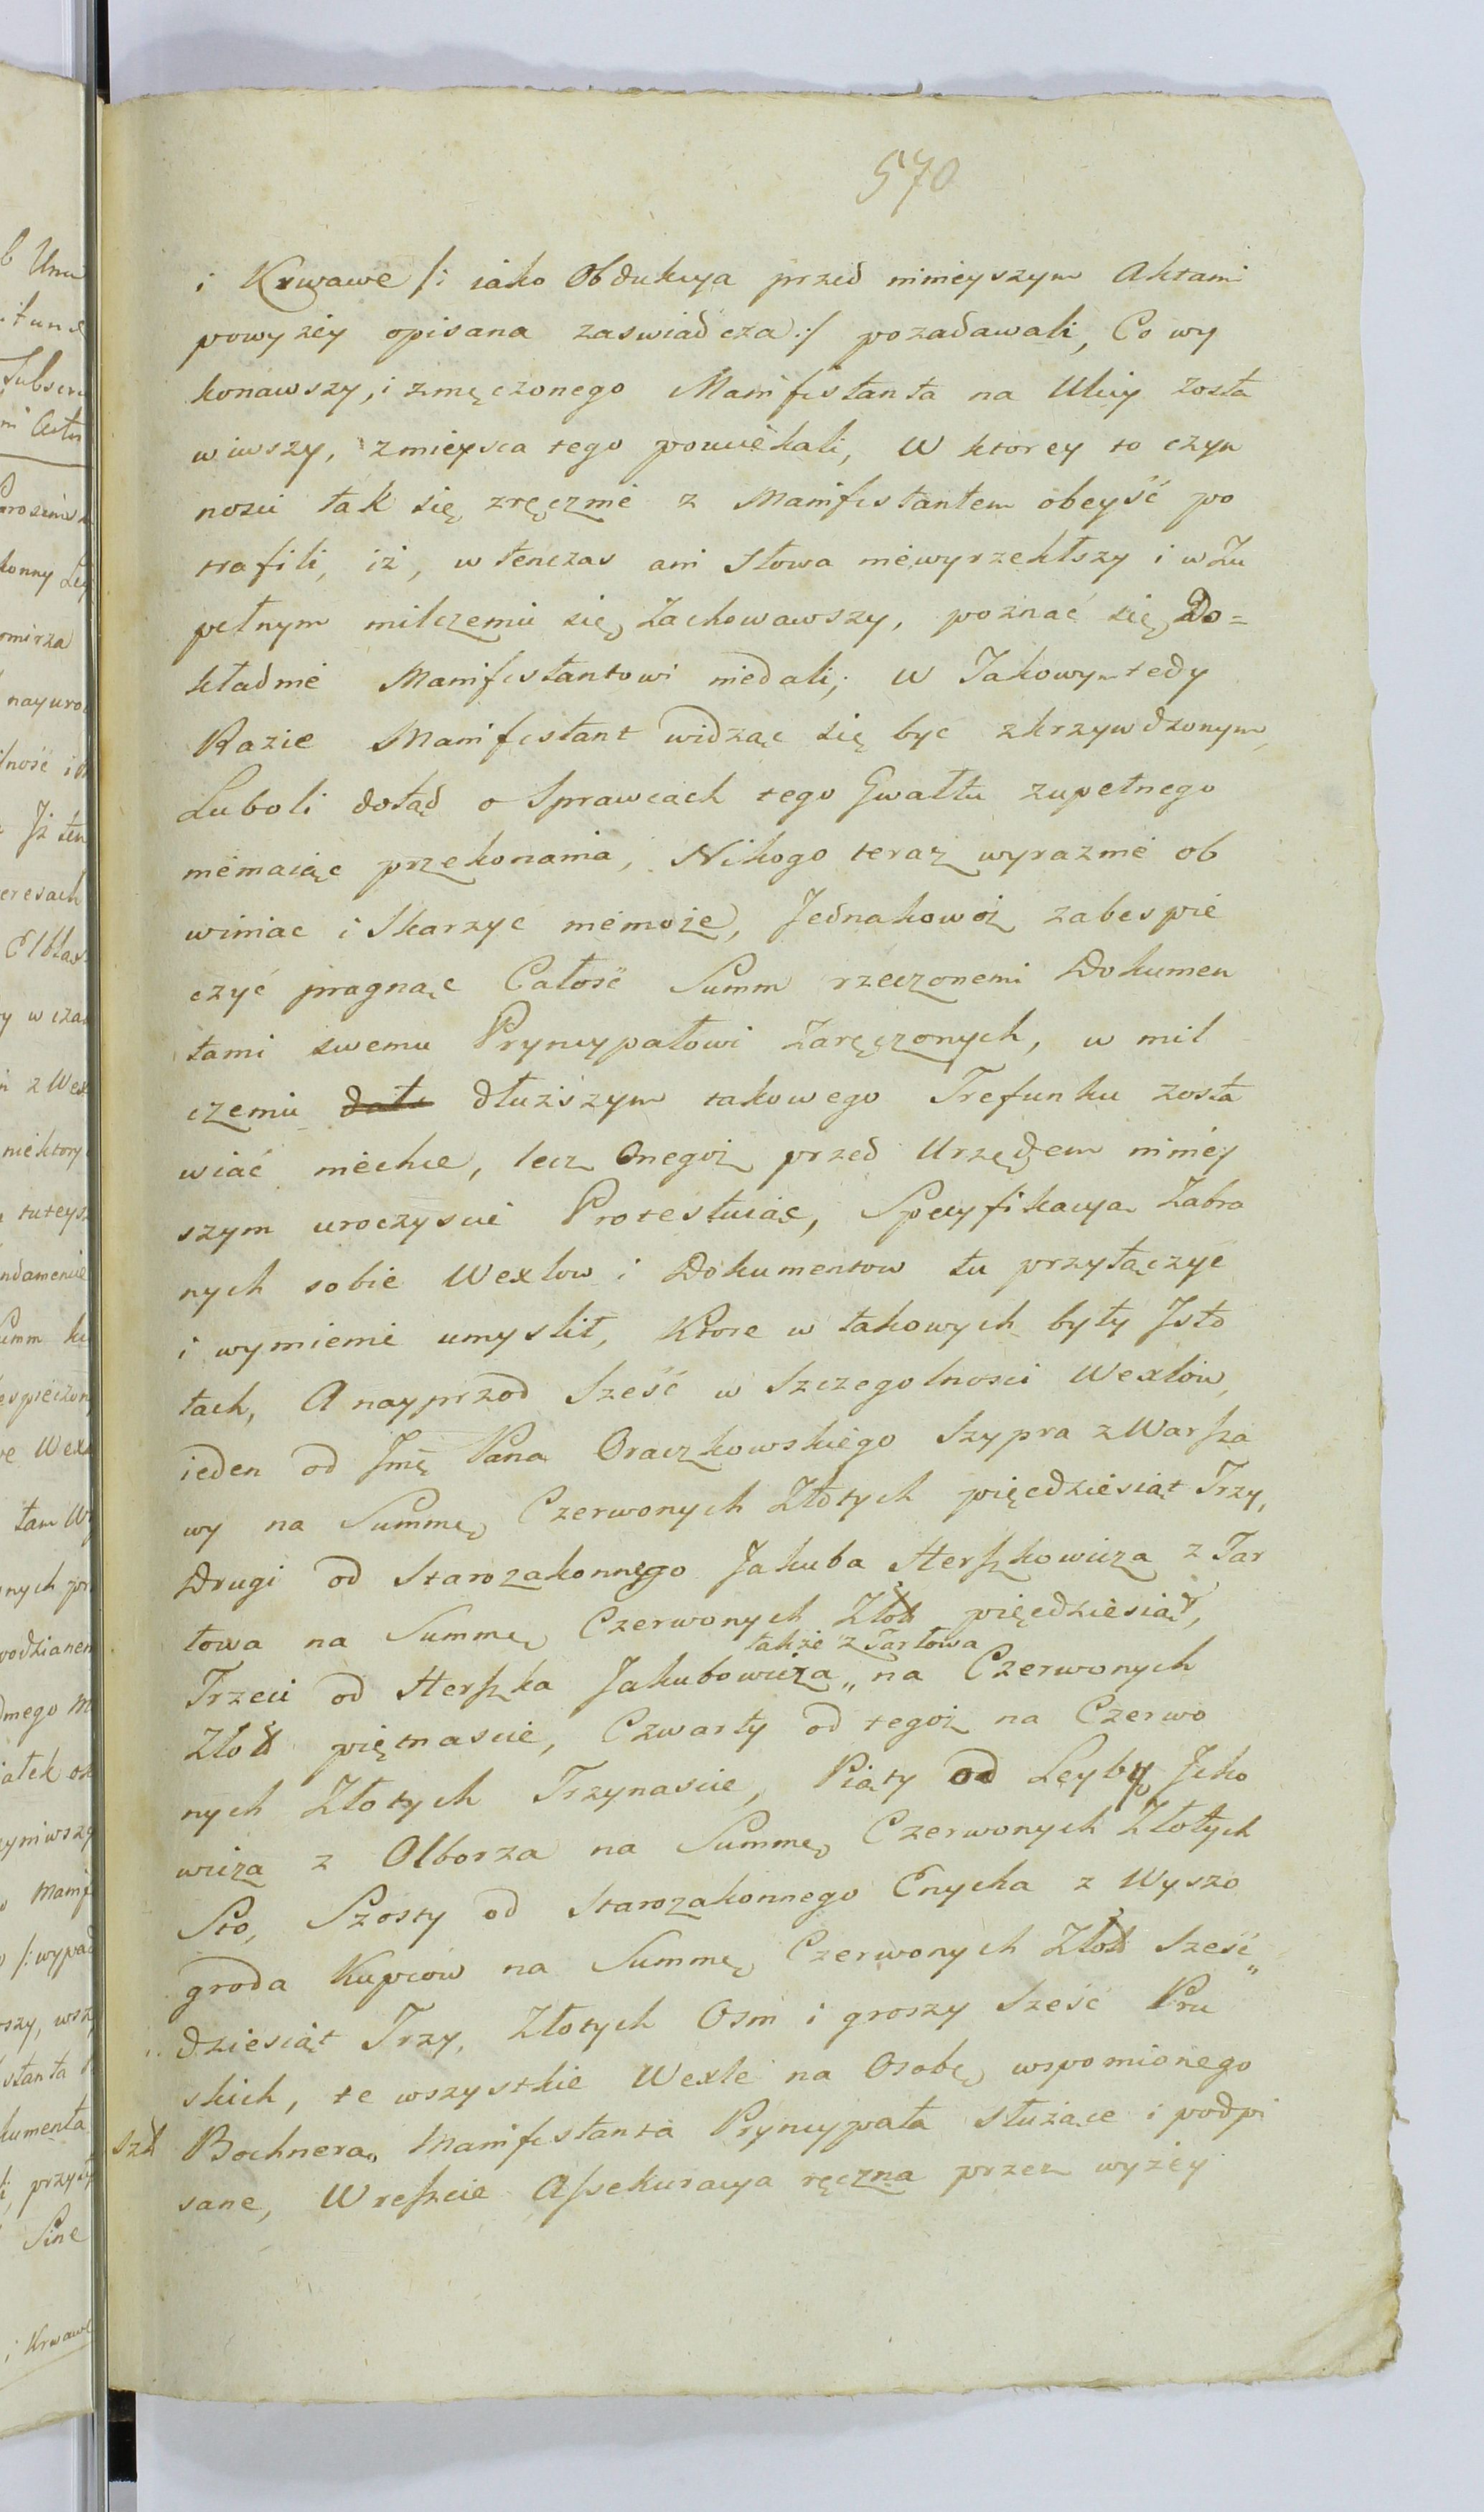 570
i Krwawe /: iako Obdukcya przed ninieyszym Aktami
powyzey opisana zaswiadcza :/ pozadawali, Co wy
konawszy, i zmęczonego Manifestanta na Ulicy zosta
wiwszy, z mieysca tego pouciekali, W ktorey to czyn
nosci tak się zręcznie z Manifestantem obeyść po
trafili, iż, w tenczas ani słowa niewyrzekłszy i w Zu
pełnym milczeniu się Zachowawszy, poznać się Do=
kładnie Manifestantowi niedali; W Takowym tedy
Razie Manifestant widząc się byc zkrzywdzonym,
Luboli dotąd o Sprawcach tego Gwałtu zupełnego
niemaiąc przekonania, Nikogo teraz wyraznie ob
winiac i Skarzyć niemoże, Jednakowoż zabespie
czyć pragnąc Całość Summ rzeczonemi Dokumen
tami swemu Pryncypałowi Zaręczonych, w mil
czeniu dłuższym takowego Trefunku zosta
wiać niechce, lecz Onegoż przed Urzędem niniey
szym uroczyscie Protestuiąc, Specyfikacya Zabra
nych sobie Wexlow i Dokumentow tu przyłączyć
i wymienic umyslił, Ktore w takowych były Isto
tach, A nayprzod Sześć w Szczegolnosci Wexlów,
ieden od Jmę Pana Oraczkowskiego Szypra z Warsza
wy na Summę Czerwonych Złotych pięcdziesiąt Trzy,
Drugi od Starozakonnego Jakuba Herszkowicza z Tar
łowa na Summę Czerwonych Złott pięcdziesiąt,
także z Tarłowa
Trzeci od Herszka Jakubowicza „ na Czerwonych
Złott piętnascie, Czwarty od tegoż na Czerwo
nych Złotych Trzynascie, Piąty od Leyby Icko
wicza z Olborza na Summę Czerwonych Złotych
Sto, Szosty od Starozakonnego Enycha z Wyszo
groda Kupców na Summę Czerwonych Złott Sześć„
dziesiąt Trzy, Złotych Osm i groszy Sześć Pru
skich, te wszystkie Wexle na Osobę wspomionego
Bochnera„ Manifestanta Pryncypała służące i podpi
sane, Wreszcie Assekuracya ręczna przez wyżey